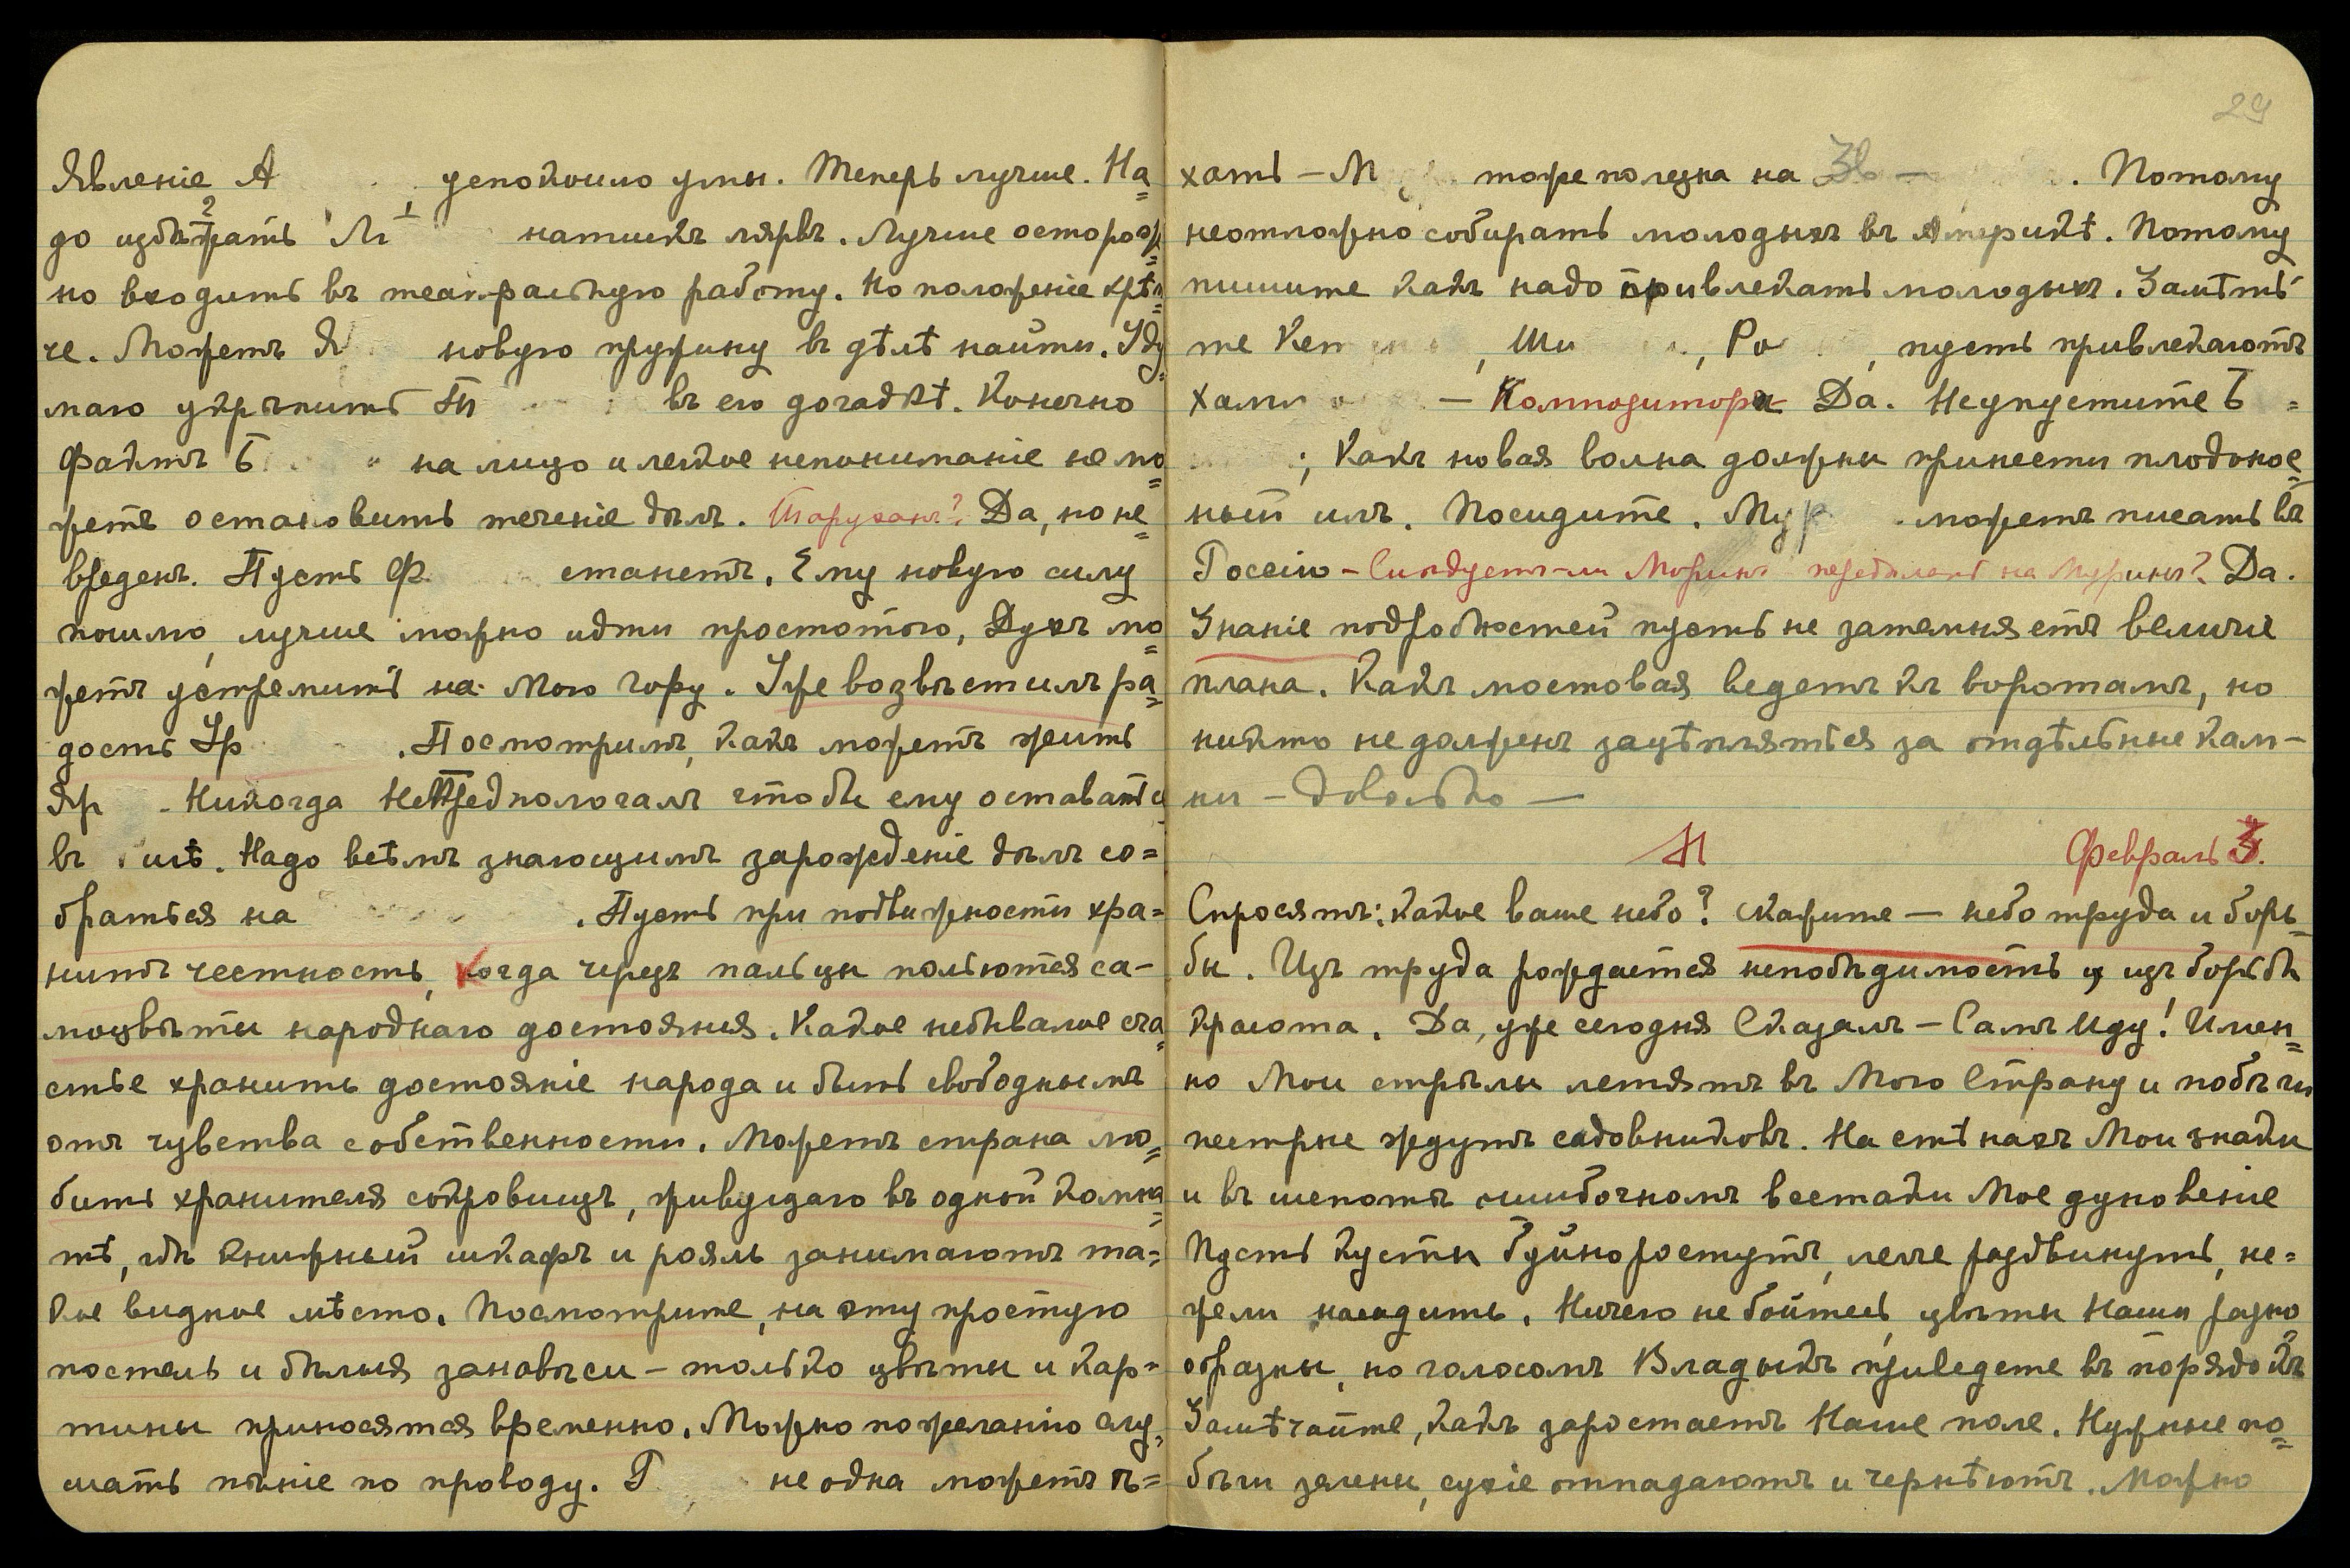 Явленіе А успокоило умы. Теперь лучше. На=
до избѣгать Ли натискъ лярвъ. Лучше осторож=
но входить въ театральную работу. Но положеніе крѣп=
че. Можетъ Я новую пружину въ дѣлѣ найти. Ду=
маю укрѣпить въ его догадкѣ. Конечно
фактъ Б на лицо и легкое непониманіе не мо=
жетъ остановить теченіе дѣлъ. Да, но не=
вреденъ. Пусть Ф станетъ. Ему новую силу
пошлю, лучше можно идти простотою, Духъ мо=
жетъ устремить на Мою Гору. Уже возвѣстилъ ра=
дость Ур . Посмотримъ, какъ можетъ жить
Яр . Никогда не Предпологалъ чтобы ему оставаться
въ . Надо всѣмъ знающимъ зарожденіе дѣлъ со=
браться на . Пусть при подвижности хра=
нитъ честность, Когда черезъ пальцы польются са-
моцвѣты народнаго достоянія. Какое небывалое сча=
стье хранить достояніе народа и быть свободнымъ
отъ чувства собственности. Можетъ страна лю=
бить хранителя сокровищъ, живущаго въ одной комна=
тѣ, гдѣ книжный шкафъ и рояль занимаютъ та=
кое видное мѣсто. Посмотрите, на эту простую
постель и бѣлыя занавѣси – только цвѣты и кар=
тины приносятся временно. Можно по желанію слу=
шать пѣніе по проводу. Г не одна можетъ ѣ=
29
хать – М тоже полезна на Зв – . Потому
неотложно собирать молодыхъ въ Америкѣ. Потому
пишите какъ надо привлекать молодыхъ. Замѣтьте
те Кеп , Ши , Ро , пусть привлекаютъ
– Композитора Да. Неупустите Б =
; Какъ новая волна должны принести плодонос=
ный илъ. Посидите. Мур можетъ писать въ
Россію – Слѣдуетъ-ли Морисъ передѣлать на Мурины? Да.
Знаніе подробностей пусть не затемняетъ величіе
плана. Какъ мостовая ведетъ къ воротамъ, но
никто не долженъ зацѣпляться за отдѣльные кам-
ни – Довольно —
Н Февраль 3.
Спросятъ: какое ваше небо? Скажите — небо труда и борь=
бы. Изъ труда рождается непобѣдимость, изъ борьбы
красота. Да, уже сегодня Сказалъ – Самъ Иду! Имен=
но Мои стрѣлы летятъ въ Мою Страну и побѣги
пестрые ждутъ садовниковъ. На стѣнахъ Мои знаки
и въ шепотѣ ошибочномъ всетаки Мое дуновеніе
Пусть кусты буйно ростутъ, легче раздвинуть, не=
жели насадить. Ничего не бойтесь, цвѣты Наши разно
образны, но голосомъ Владыкъ приведете въ порядокъ
Замѣчайте, какъ заростаетъ Наше поле. Нужные по=
бѣги зелены, сухіе отпадаютъ и чернѣютъ. Можно